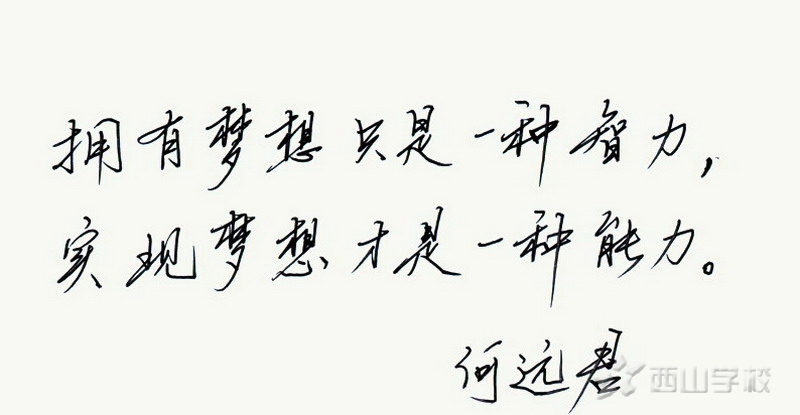 拥有梦想只是一种智力，
实现梦想才是一种能力。
何远君
西山学校